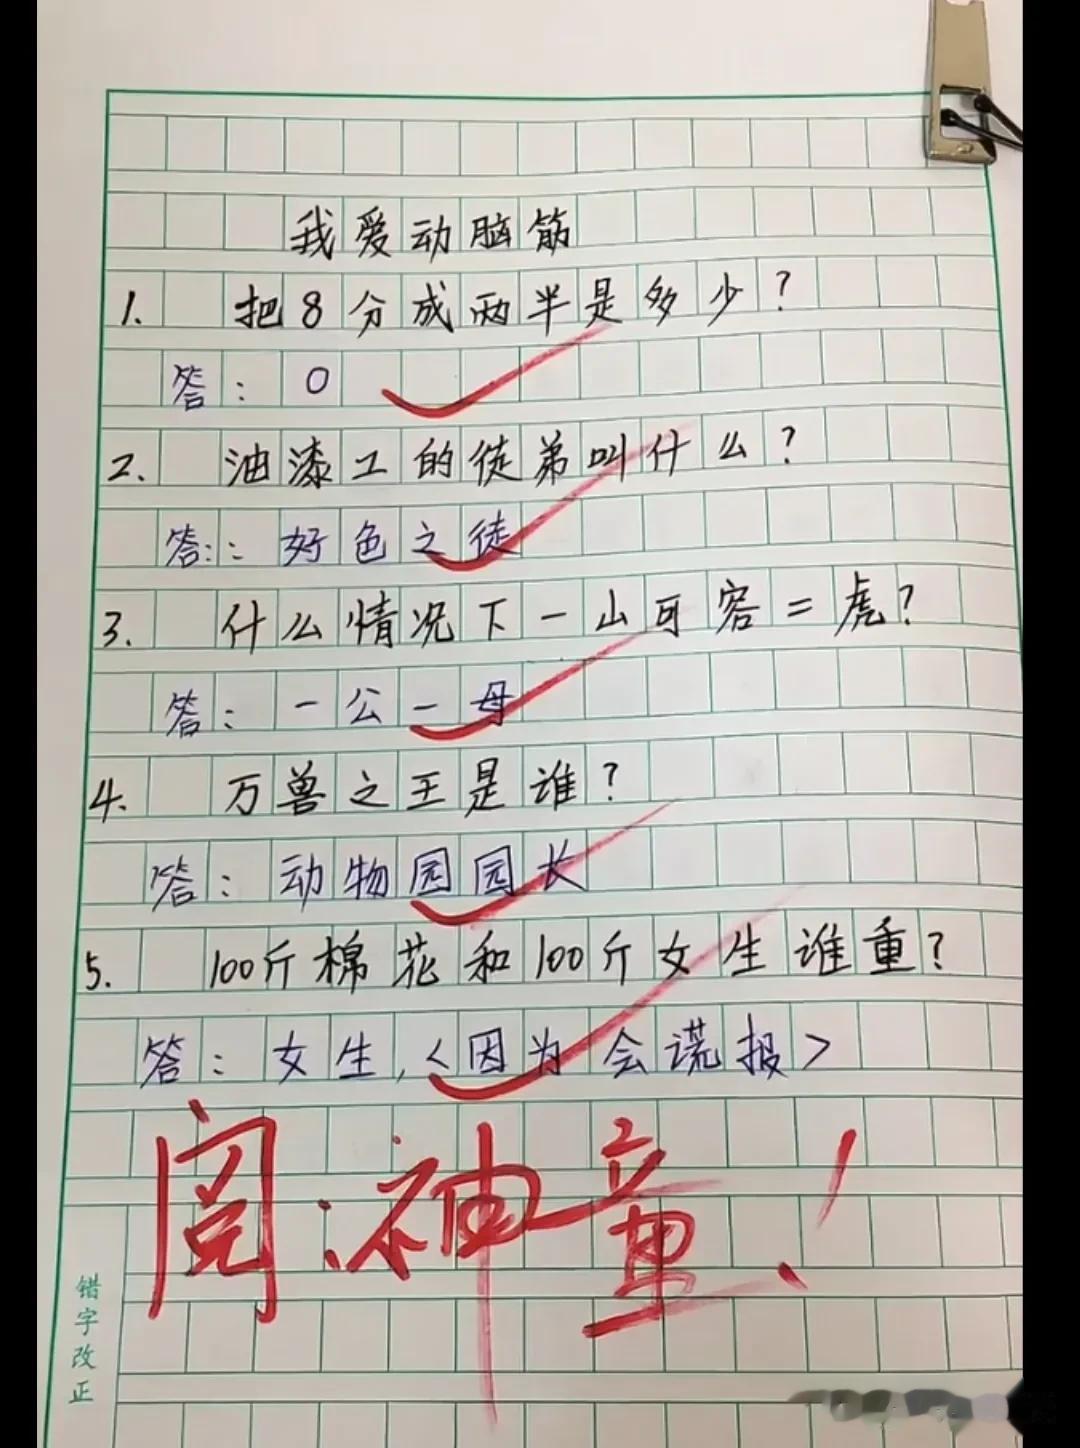 我爱动脑筋
1. 把8分成两半是多少?
答: 0
2. 油漆工的徒弟叫什么?
答:: 好色之徒
3. 什么情况下一山可容=虎?
答: 一公一母
4. 万兽之王是谁?
答: 动物园园长
5. 100斤棉花和100斤女生谁重?
答: 女生,<因为会谎报>
阅:神童!
错字改正